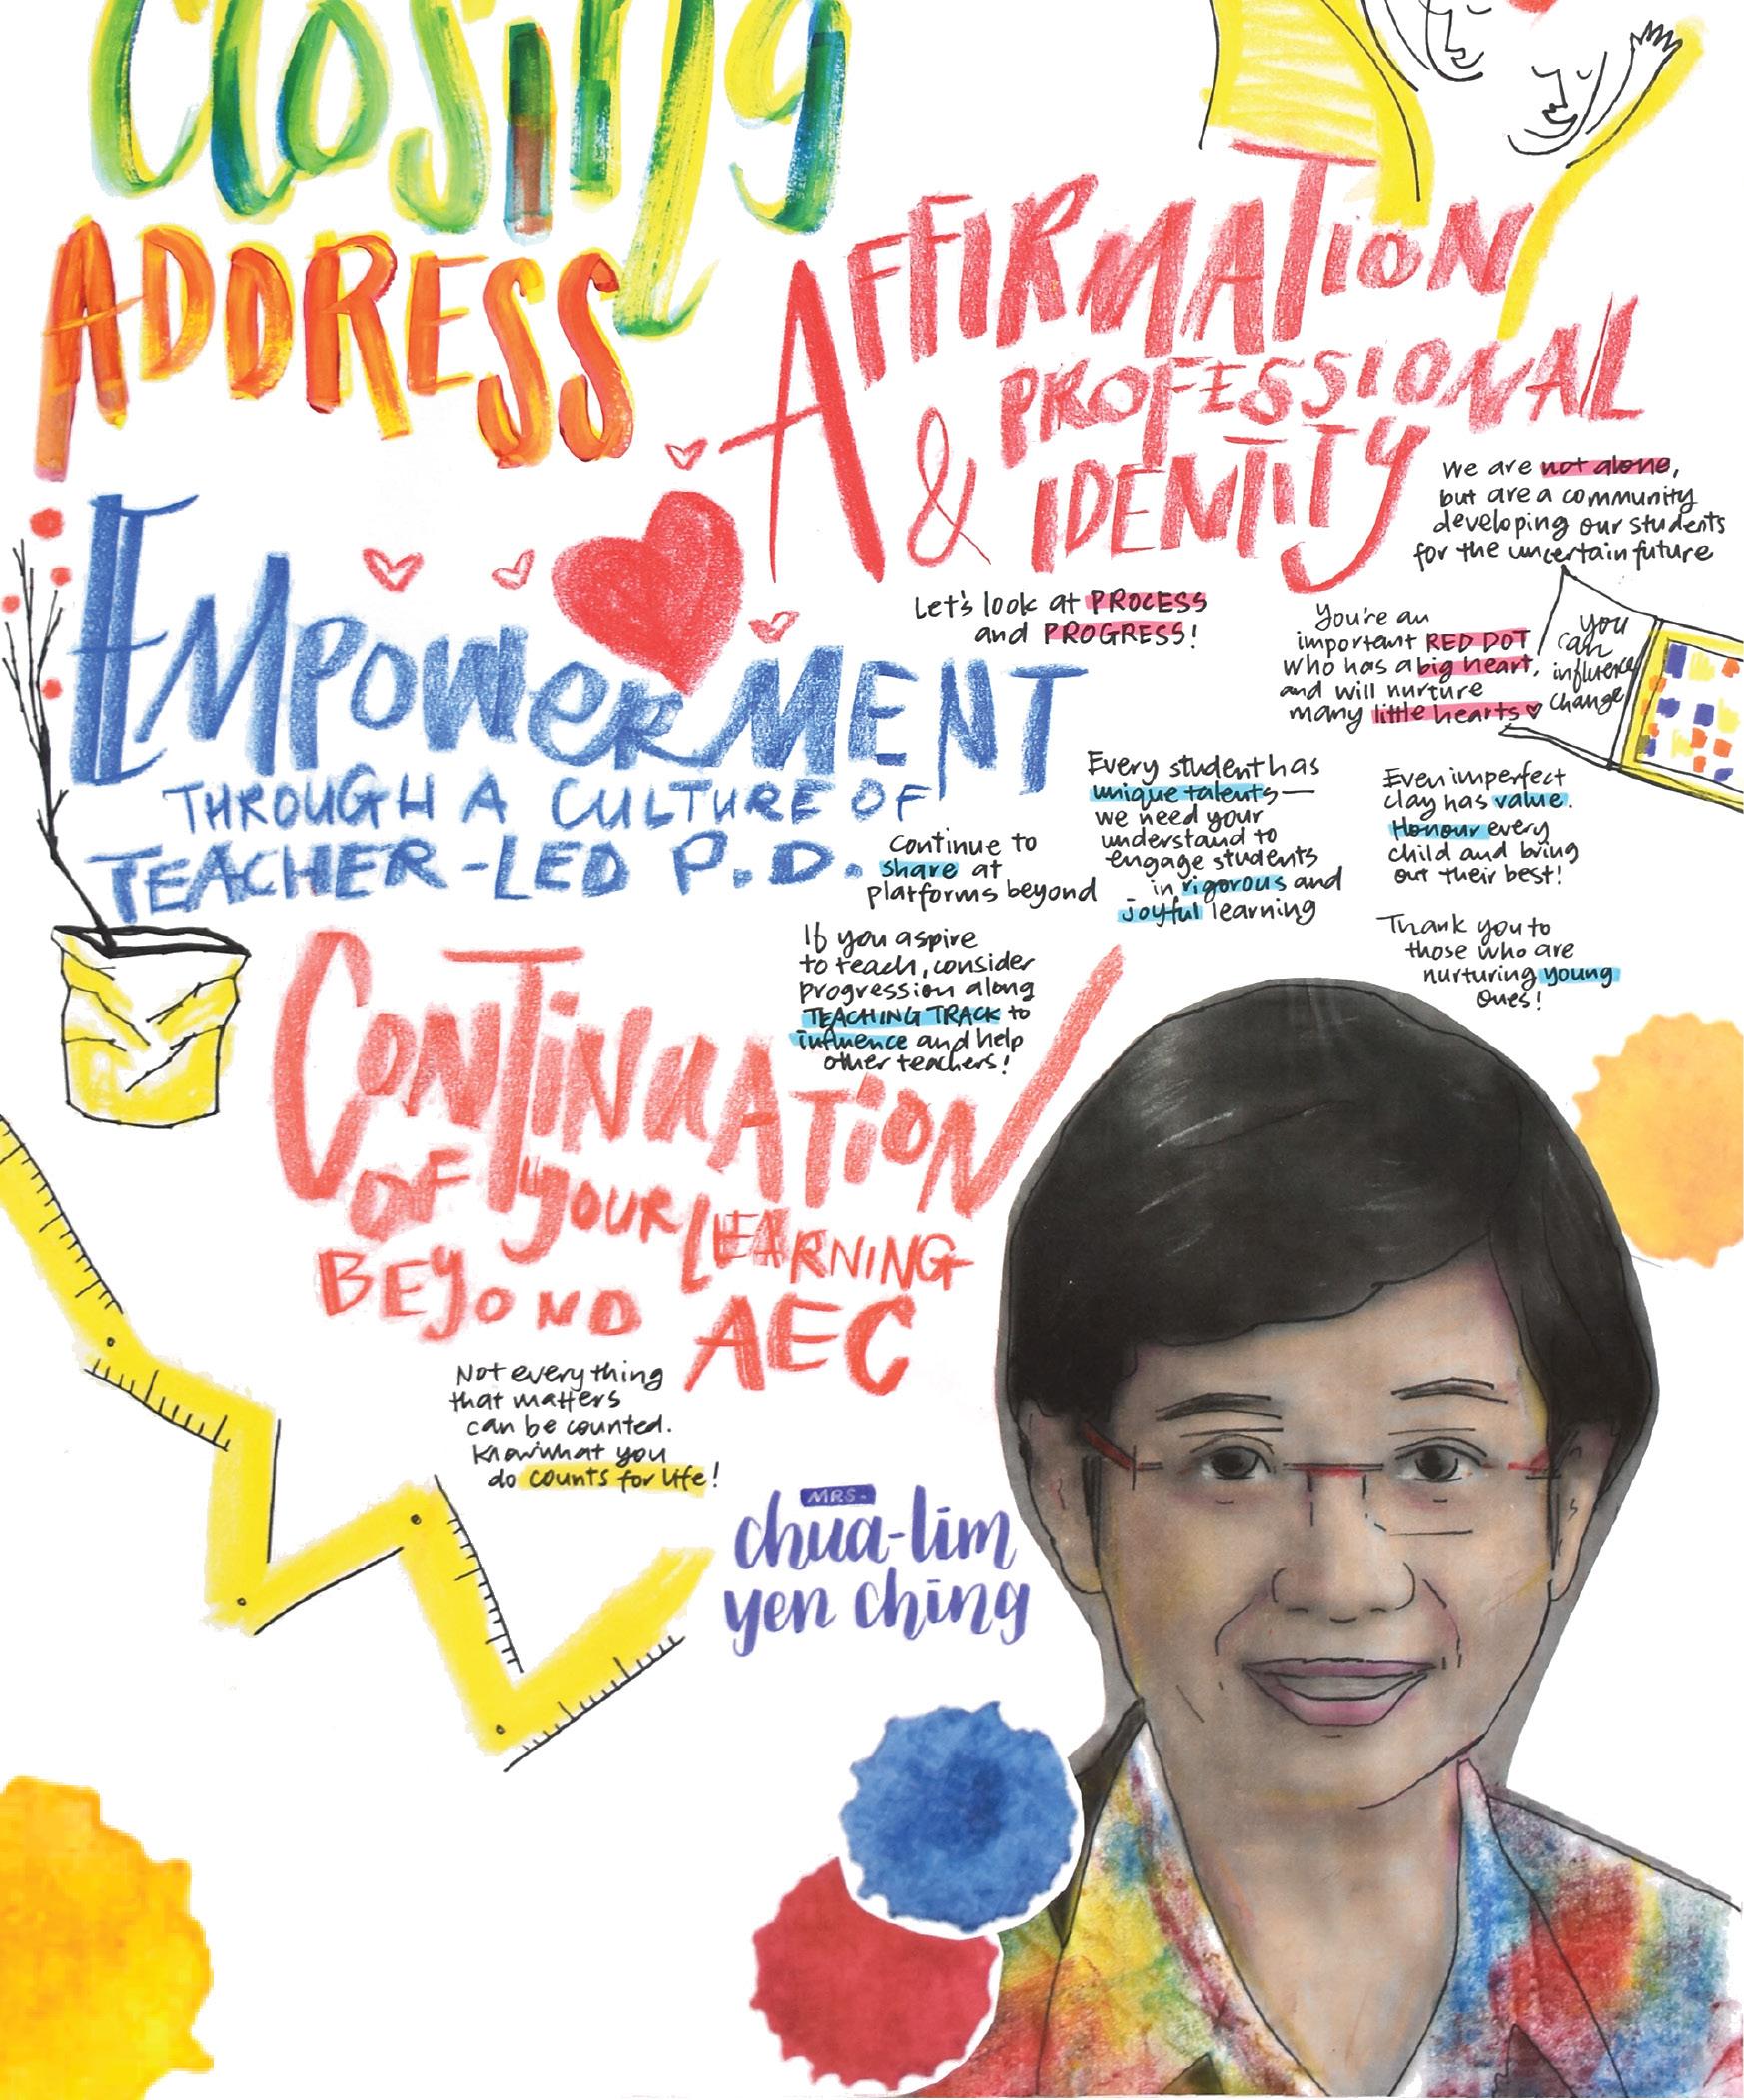 Closing
ADDRESS
AFFIRMATION
& PROFESSIONAL
IDENTITY
We are not alone,
but are a community
developing our students
for the uncertain future
Let's look at PROCESS
and PROGRESS!
You're an
important RED DOT
who has a big heart,
and will nurture
many little hearts
you
can
influence
change
EMPOWERMENT
THROUGH A CULTURE OF
TEACHER-LED P.D.
Continue to
share at
platforms beyond
Every student has
unique talents—
we need your
understand to
engage students
in rigorous and
joyful learning
Even imperfect
clay has value.
Honour every
child and bring
out their best!
Thank you to
those who are
nurturing young
ones!
If you aspire
to teach, consider
progression along
TEACHING TRACK to
influence and help
other teachers!
CONTINUATION
OF YOUR LEARNING
BEYOND AEC
Not everything
that matters
can be counted.
Know what you
do counts for life!
MRS.
chua-lim
yen ching